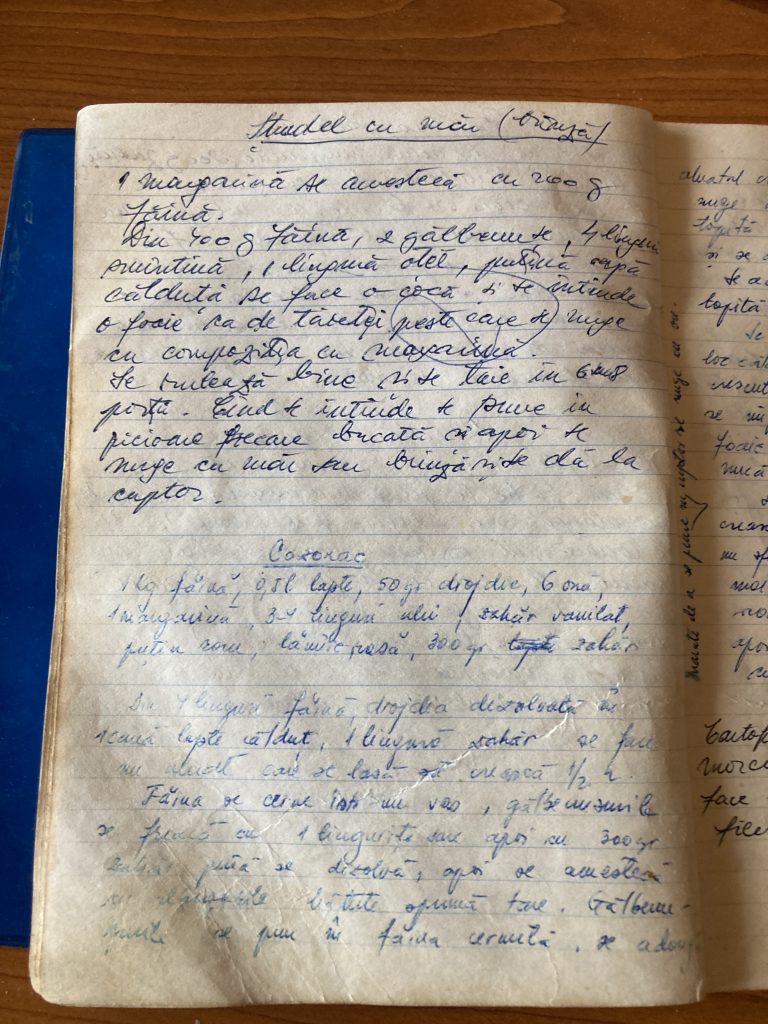 Strudel cu măr (brînză)
1 margarină se amestecă cu 200 g
făină.
Din 400 g făină, 2 gălbenușe, 4 linguri
smîntînă, 1 lingură oțet, puțină apă
călduță se face o cocă și se întinde
o foaie ca de tăieței peste care se unge
cu compoziția cu margarină.
Se rulează bine și se taie în
Cînd se întinde se pune în
picioare fiecare bucată și apoi se
unge cu măr sau brînză și se dă la
cuptor.
Cozonac
1 kg făină, 0,5 l lapte, 50 gr drojdie, 6 ouă,
1 margarină, 3-4 linguri ulei, zahăr vanilat,
puțin rom, lămîie rasă, 300 gr zahăr
Din 4 linguri făină, drojdia dizolvată în
1 cană lapte căldut, 1 lingură zahăr se face
un aluat care se lasă să crească 1/2 h.
Făina se cerne într un vas, gălbenușurile
se freacă cu 1 linguriță sare apoi cu 300 gr
zahăr pînă se dizolvă, apoi se amestecă
cu albușurile bătute spumă tare. Gălbenu-
șurile se pun în făina cernută, se adaugă
aluatul
unge
topită
și se
topită
Înainte de a se pune în cuptor se unge cu ou.
loc
crescut
se
foaie
nucă
nu
apoi
Cartofi
face